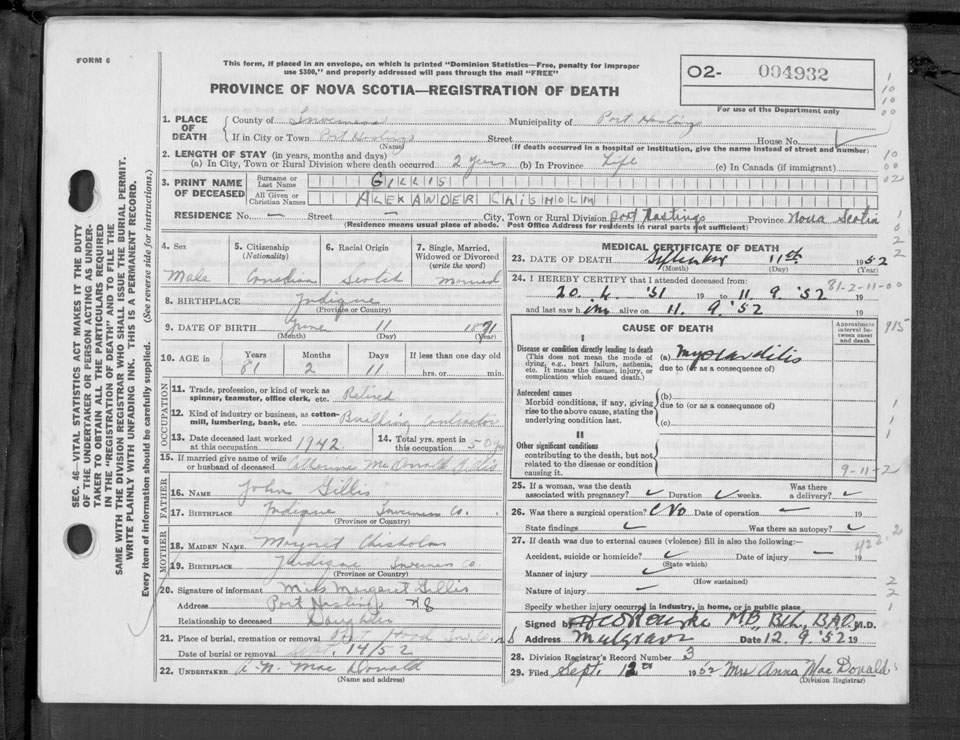 FORM 6
This form, if placed in an envelope, on which is printed "Dominion Statistics—Free, penalty for improper
use $300," and properly addressed will pass through the mail "FREE"
PROVINCE OF NOVA SCOTIA—REGISTRATION OF DEATH
O2- 004932
For use of the Department only
SEC. 46—VITAL STATISTICS ACT MAKES IT THE DUTY
OF THE UNDERTAKER OR PERSON ACTING AS UNDER-
TAKER TO OBTAIN ALL THE PARTICULARS REQUIRED
IN THE "REGISTRATION OF DEATH" AND TO FILE THE
SAME WITH THE DIVISION REGISTRAR WHO SHALL ISSUE THE BURIAL PERMIT.
WRITE PLAINLY WITH UNFADING INK. THIS IS A PERMANENT RECORD.
Every item of information should be carefully supplied. (See reverse side for instructions.)
1. PLACE OF DEATH
County of Inverness Municipality of Port Hastings
If in City or Town Port Hastings Street House No.
(Name) (If death occurred in a hospital or institution, give the name instead of street and number)
2. LENGTH OF STAY (in years, months and days)
(a) In City, Town or Rural Division where death occurred 2 years (b) In Province Life (c) In Canada (if immigrant)
3. PRINT NAME OF DECEASED
Surname or Last Name GILLIS
All Given or Christian Names ALEXANDER ChisHOLM
RESIDENCE No. — Street — City, Town or Rural Division Port Hastings Province Nova Scotia
(Residence means usual place of abode. Post Office Address for residents in rural parts not sufficient)
4. Sex Male
5. Citizenship (Nationality) Canadian
6. Racial Origin Scotch
7. Single, Married, Widowed or Divorced (write the word) Married
8. BIRTHPLACE Judique
(Province or Country)
9. DATE OF BIRTH June 11 1871
(Month) (Day) (Year)
10. AGE in Years 81 Months 2 Days 11 If less than one day old hrs. or min.
OCCUPATION
11. Trade, profession, or kind of work as spinner, teamster, office clerk, etc. Retired
12. Kind of industry or business, as cotton-mill, lumbering, bank, etc. Building Contractor
13. Date deceased last worked at this occupation 1942
14. Total yrs. spent in this occupation
15. If married give name of wife or husband of deceased Catherine McDonald Gillis
FATHER
16. NAME John Gillis
17. BIRTHPLACE Judique Inverness Co.
(Province or Country)
MOTHER
18. MAIDEN NAME Margaret Chisholm
19. BIRTHPLACE Judique Inverness Co.
(Province or Country)
20. Signature of informant Miss Margaret Gillis
Address Port Hastings NS
Relationship to deceased Daughter
21. Place of burial, cremation or removal Port Hood Inv. Co. N S
Date of burial or removal Sept. 14/52
22. UNDERTAKER A. N. Mac Donald
(Name and address)
MEDICAL CERTIFICATE OF DEATH
23. DATE OF DEATH September 11th 1952
(Month) (Day) (Year)
24. I HEREBY CERTIFY that I attended deceased from: 81-2-11-00
20. 4. '51 19 to 11. 9. '52 19
and last saw him alive on 11. 9. '52 19
CAUSE OF DEATH
Approximate interval between onset and death
915
I
Disease or condition directly leading to death (a) Myocarditis
(This does not mean the mode of dying, e.g., heart failure, asthenia, etc. It means the disease, injury, or complication which caused death.) due to (or as a consequence of)
Antecedent causes (b)
Morbid conditions, if any, giving rise to the above cause, stating the underlying condition last. due to (or as a consequence of)
(c)
II
Other significant conditions
contributing to the death, but not related to the disease or condition causing it.
9-11-2
25. If a woman, was the death associated with pregnancy? Duration weeks. Was there a delivery?
26. Was there a surgical operation? No Date of operation — 19
State findings Was there an autopsy?
422.2
27. If death was due to external causes (violence) fill in also the following:—
Accident, suicide or homicide? Date of injury — 19
(State which)
Manner of injury
(How sustained)
Nature of injury —
Specify whether injury occurred in industry, in home, or in public place
Signed by M.B, BCh, BAO, M.D.
Address Mulgrave Date 12. 9. '52 19
28. Division Registrar's Record Number 3
29. Filed Sept. 12th 1952 Mrs Anna Mac Donald
(Division Registrar)